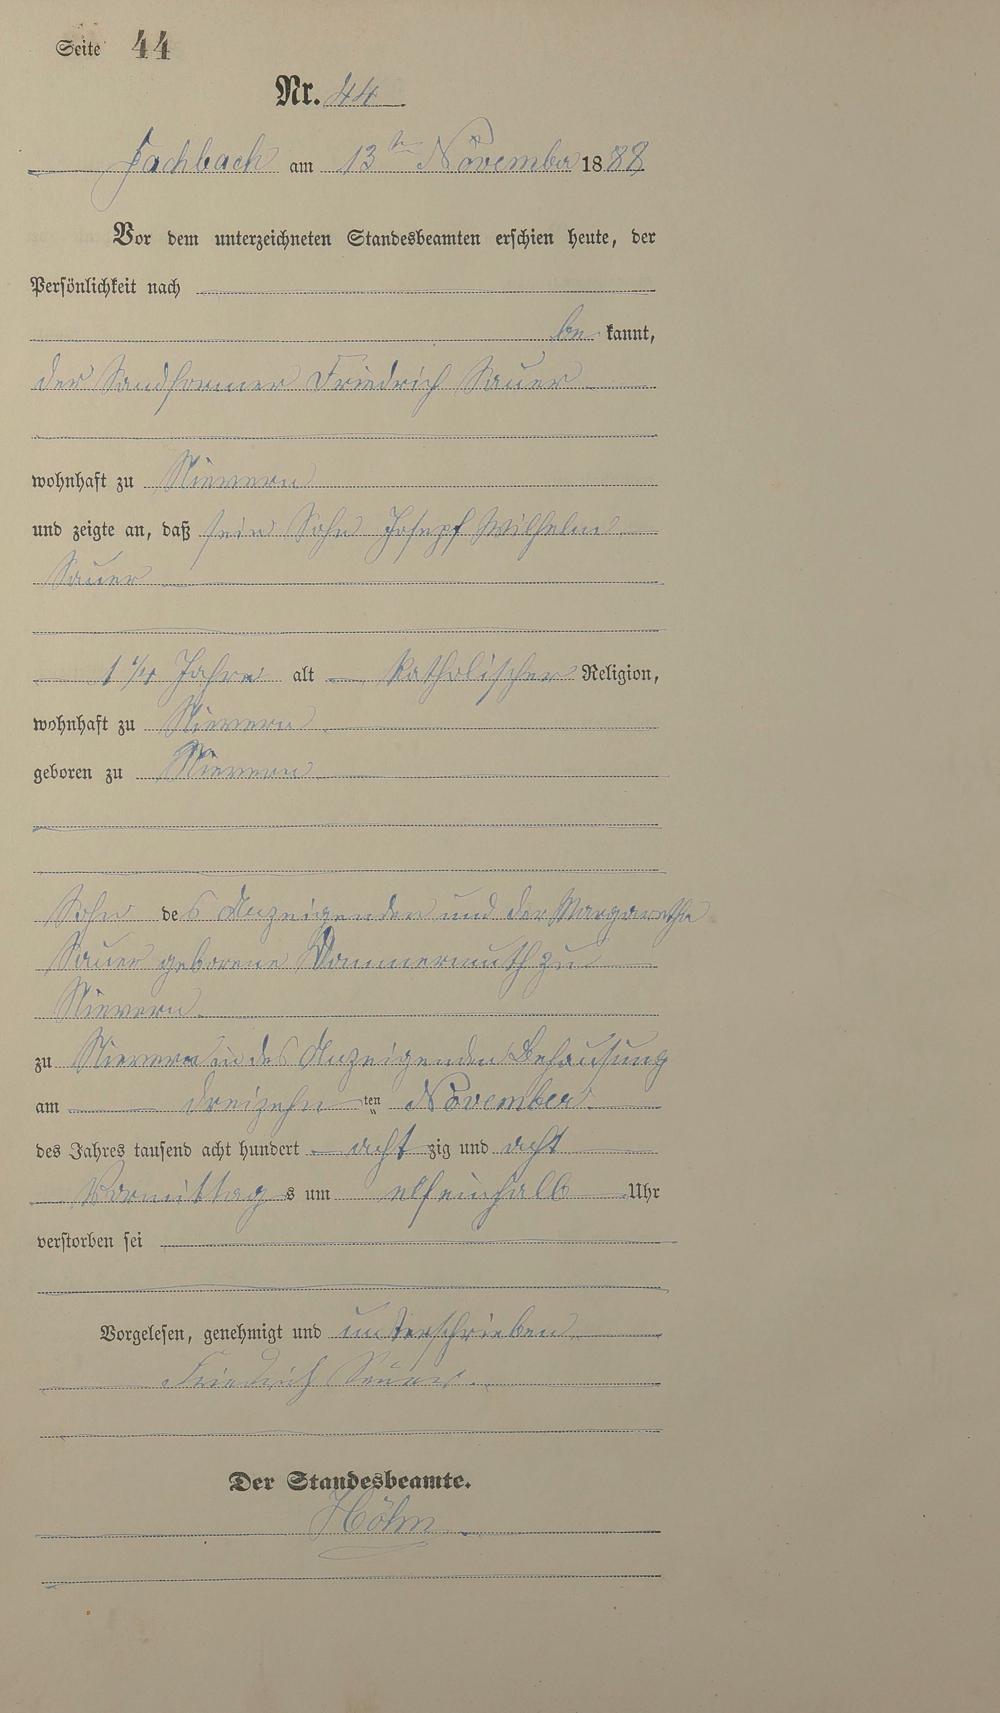 Seite 44
Nr. 44
Fachbach am 13ten November 1888
Vor dem unterzeichneten Standesbeamten erschien heute, der
Persönlichkeit nach
be kannt,
der Sandformer Friedrich Sauer
wohnhaft zu Nievern
und zeigte an, daß sein Sohn Josepf Wilhelm
Sauer
1 1/4 Jahre alt katholischer Religion,
wohnhaft zu Nievern
geboren zu Nievern
Sohn des Anzeigenden und der Margaretha
Sauer geborene Dommermuth zu
Nievern
zu Nievern in des Anzeigenden Behausung
am dreizehn ten November
des Jahres tausend acht hundert acht zig und acht
Vormittag s um elfeinhalb Uhr
verstorben sei
Vorgelesen, genehmigt und unterschrieben
Friedrich Sauer.
Der Standesbeamte.
Höhn